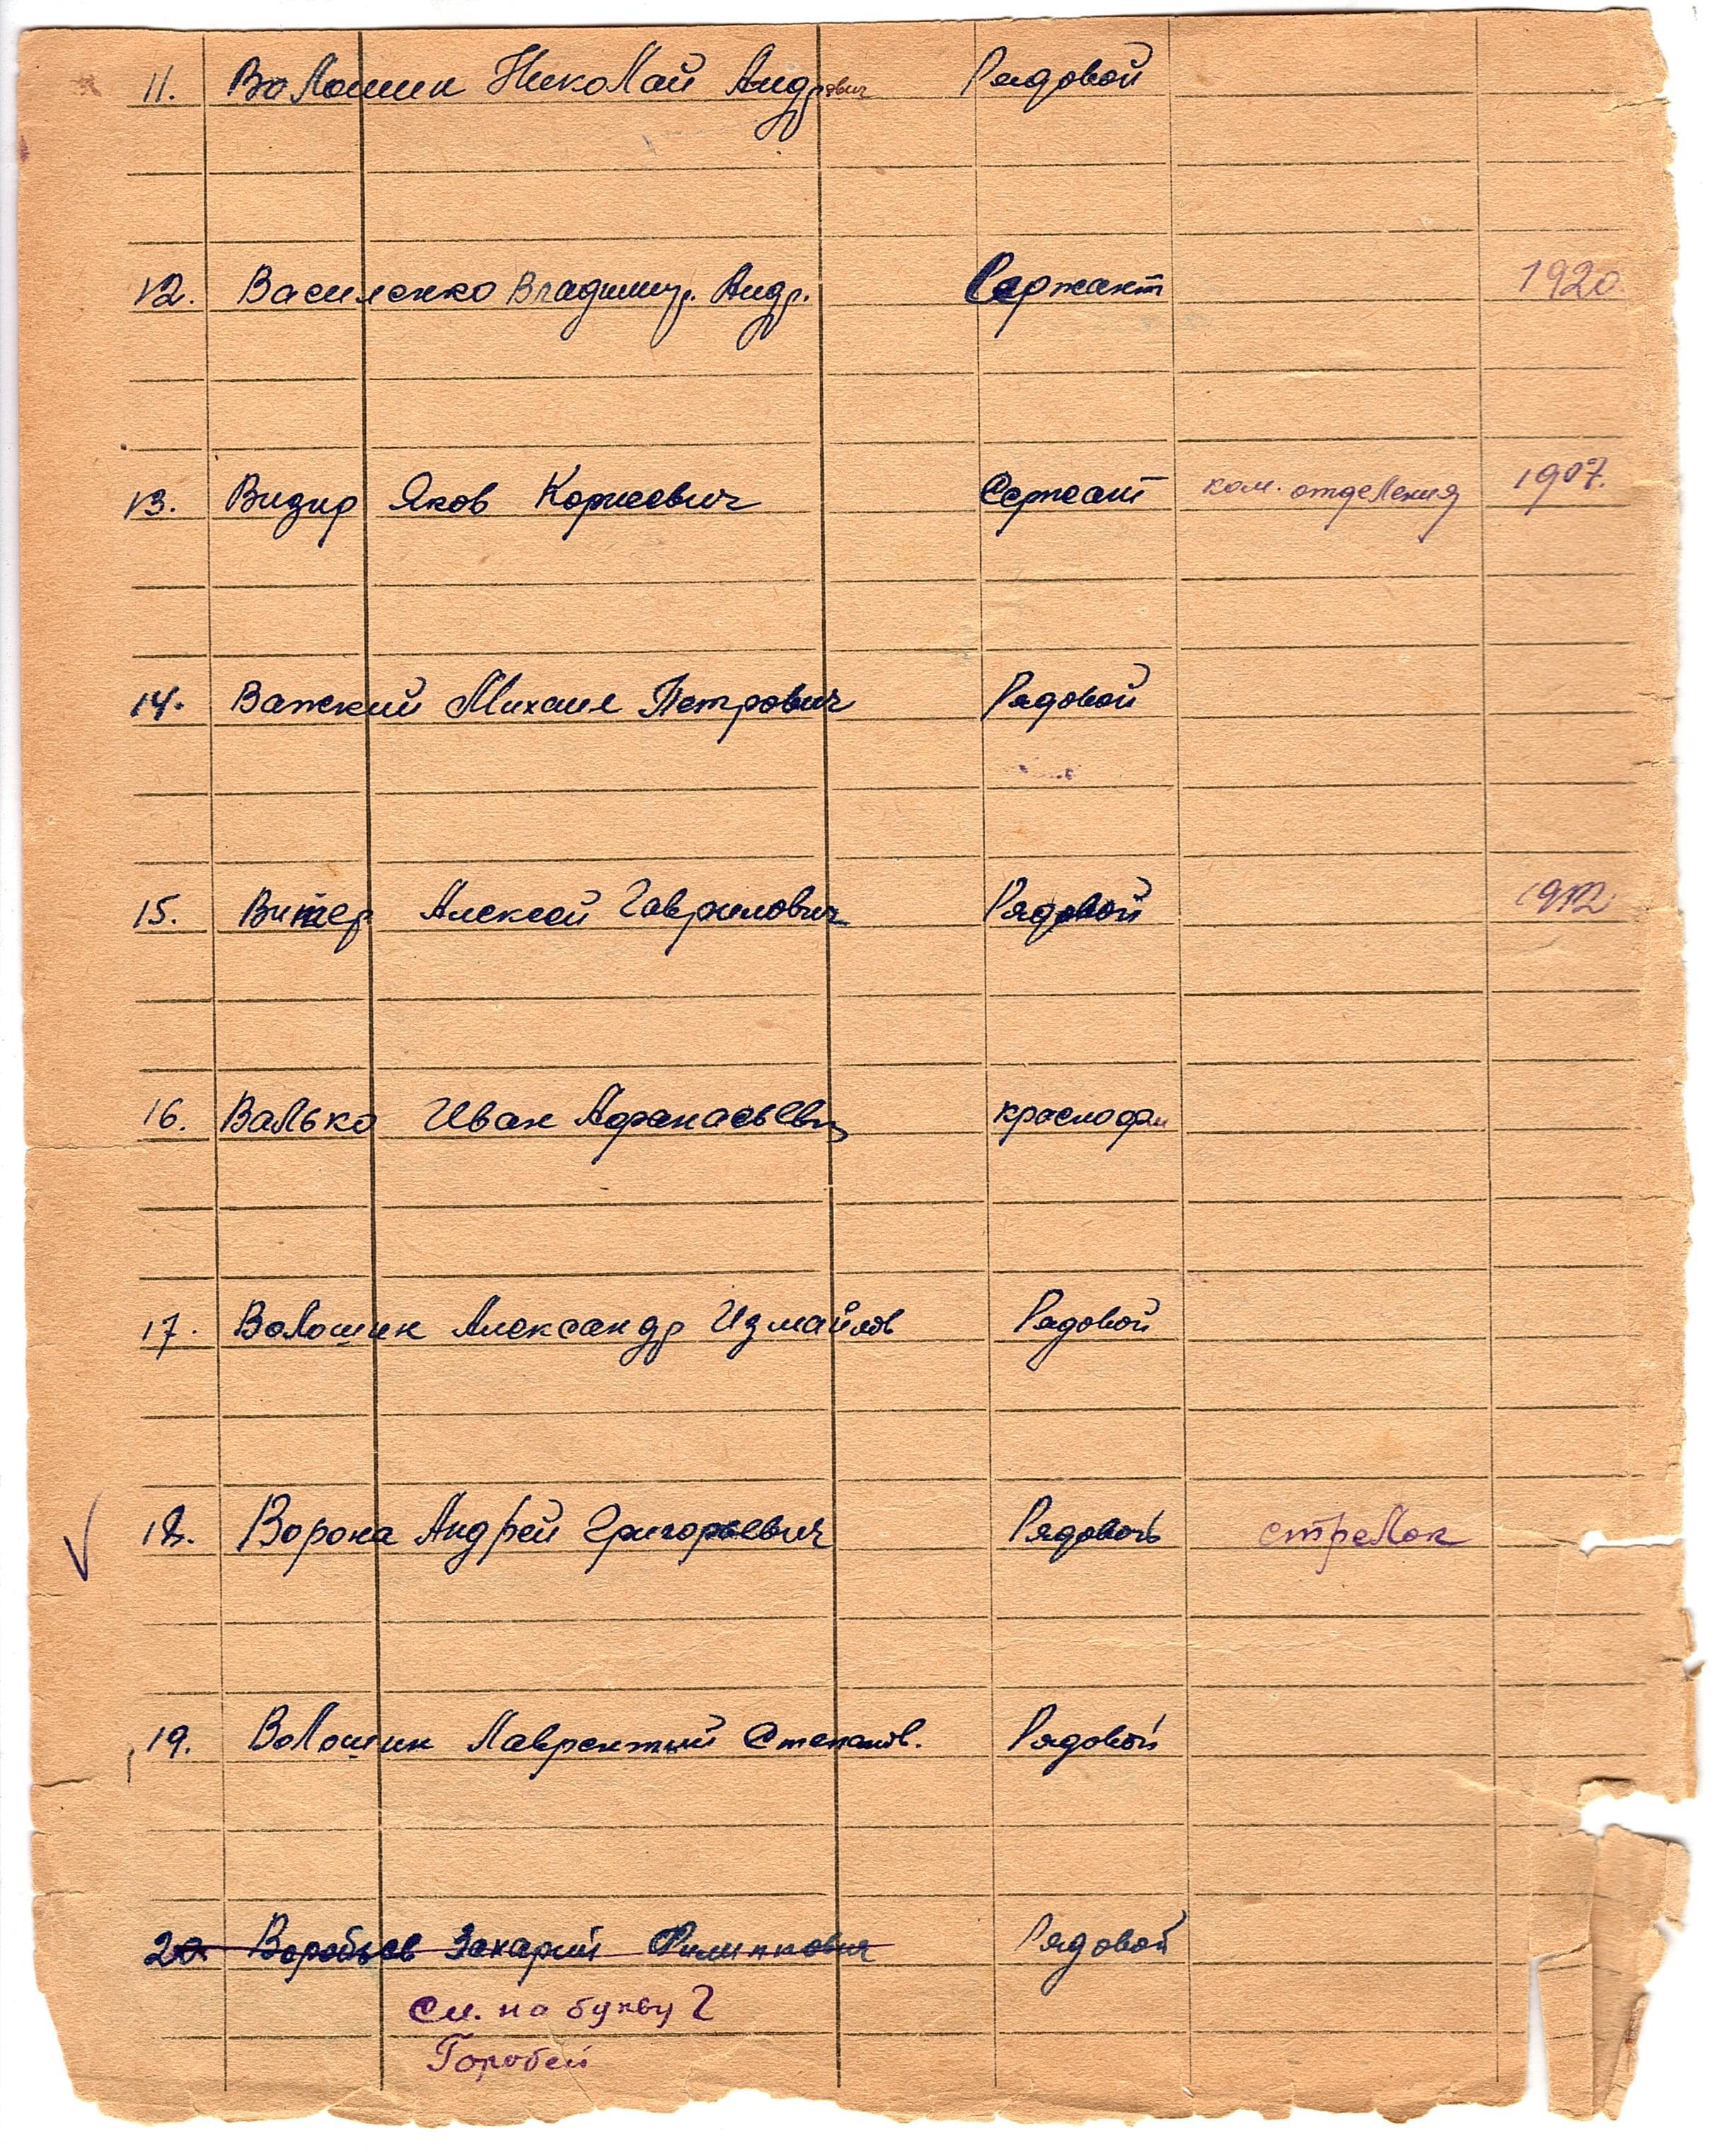 11. Волошин Николай Андрович Рядовой
12. Василенко Владимир. Андр. Сержант 1920
13. Визир Яков Корнеевич Сержант ком. отделения 1907.
14. Важский Михаил Петрович Рядовой
15. Витер Алексей Гаврилович Рядовой
16. Валько Иван Афанасьевич
17. Волошин Александр Измайлов Рядовой
18. Ворона Андрей Григорьевич Рядовой стрелок
19. Волошин Лаврентий Степанов. Рядовой
20 Воробьев Захарий Филиппович Рядовой
См. на букву Г
Горобей